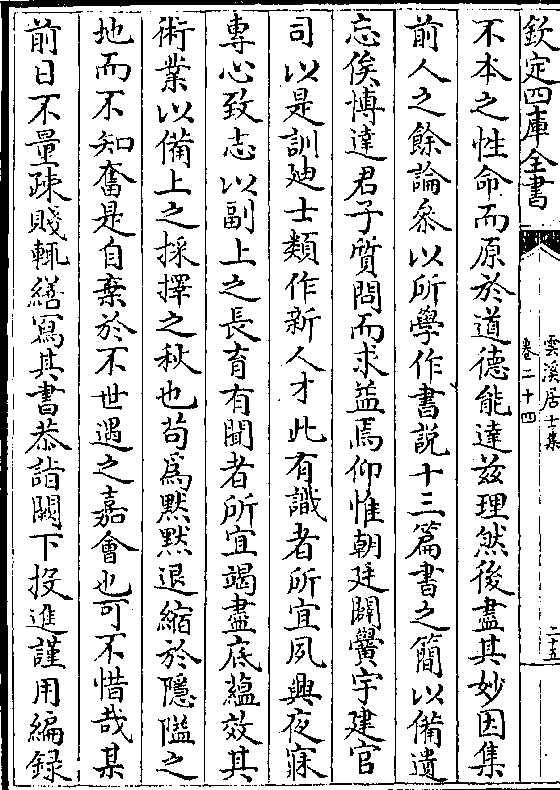 欽定四庫全書
雲溪居士集
卷二十四
二十五
不本之性命而原於道德能達茲理然後盡其妙因集
前人之餘論叅以所學作書說十三篇書之簡以備遺
忘俟博達君子質問而求益焉仰惟朝廷闢黌宇建官
司以是訓廸士類作新人才此有識者所宜夙興夜寐
專心致志以副上之長育有聞者所宜竭盡底蘊效其
術業以備上之採擇之秋也茍為默默退縮於隱隘之
地而不知奮是自棄於不世遇之嘉會也可不惜哉某
前日不量疎賤輒繕寫其書恭詣闕下投進謹用編録